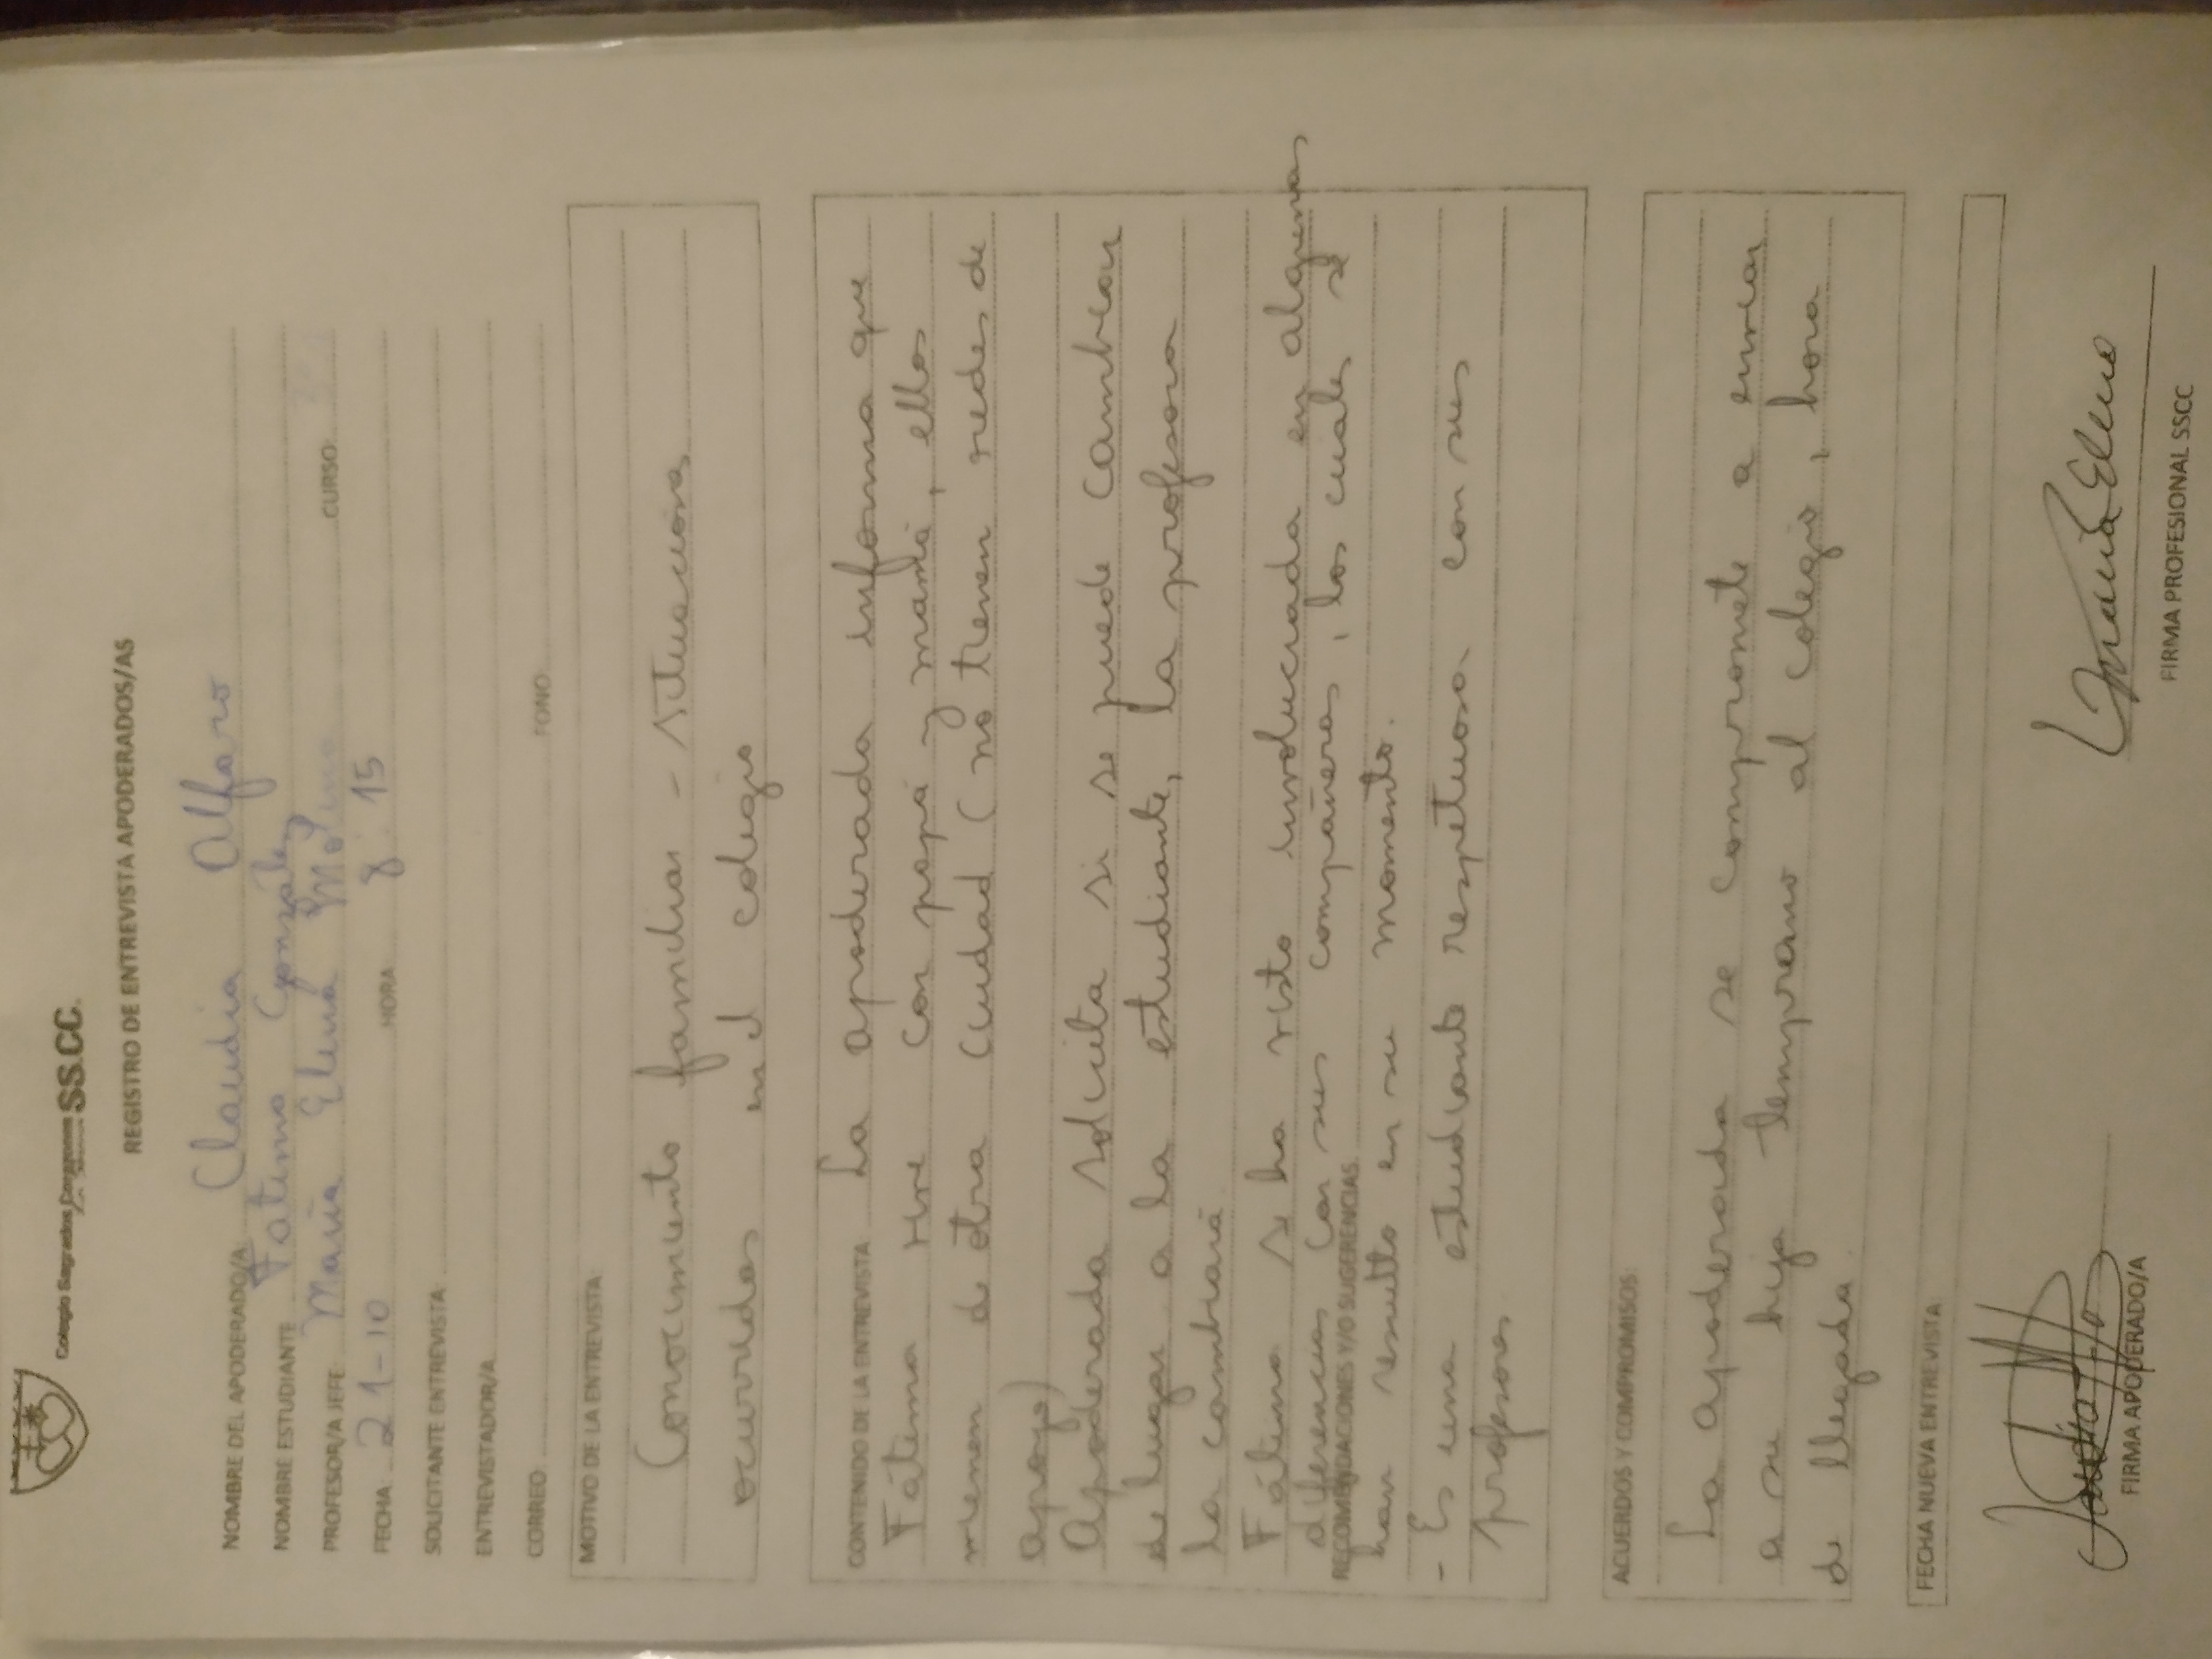 Colegio Sagrados Corazones SS.CC.
REGISTRO DE ENTREVISTA APODERADOS/AS
NOMBRE DEL APODERADO/A: Claudia Alfaro
NOMBRE ESTUDIANTE Fatima González
PROFESOR/A JEFE: María Elena Molina CURSO:
FECHA: 21-10 HORA: 8:15
SOLICITANTE ENTREVISTA:
ENTREVISTADOR/A:
CORREO: FONO:
MOTIVO DE LA ENTREVISTA:
Conocimiento familiar - situaciones
ocurridas en el colegio
CONTENIDO DE LA ENTREVISTA: La apoderada informa que
Fátima vive con papá y mamá, ellos
vienen de otra ciudad (no tienen redes de
apoyo)
Apoderada solicita si se puede cambiar
de lugar a la estudiante, la profesora
la cambiará.
Fátima se ha visto involucrada en algunas
diferencias con sus compañeros, los cuales se
RECOMENDACIONES Y/O SUGERENCIAS:
han resulto en su momento.
- Es una estudiante respetuosa con sus
profesores
ACUERDOS Y COMPROMISOS:
La apoderada se compromete a enviar
a su hija temprano al colegio, hora
de llegada.
FECHA NUEVA ENTREVISTA:
María Elena
FIRMA APODERADO/A
FIRMA PROFESIONAL SSCC